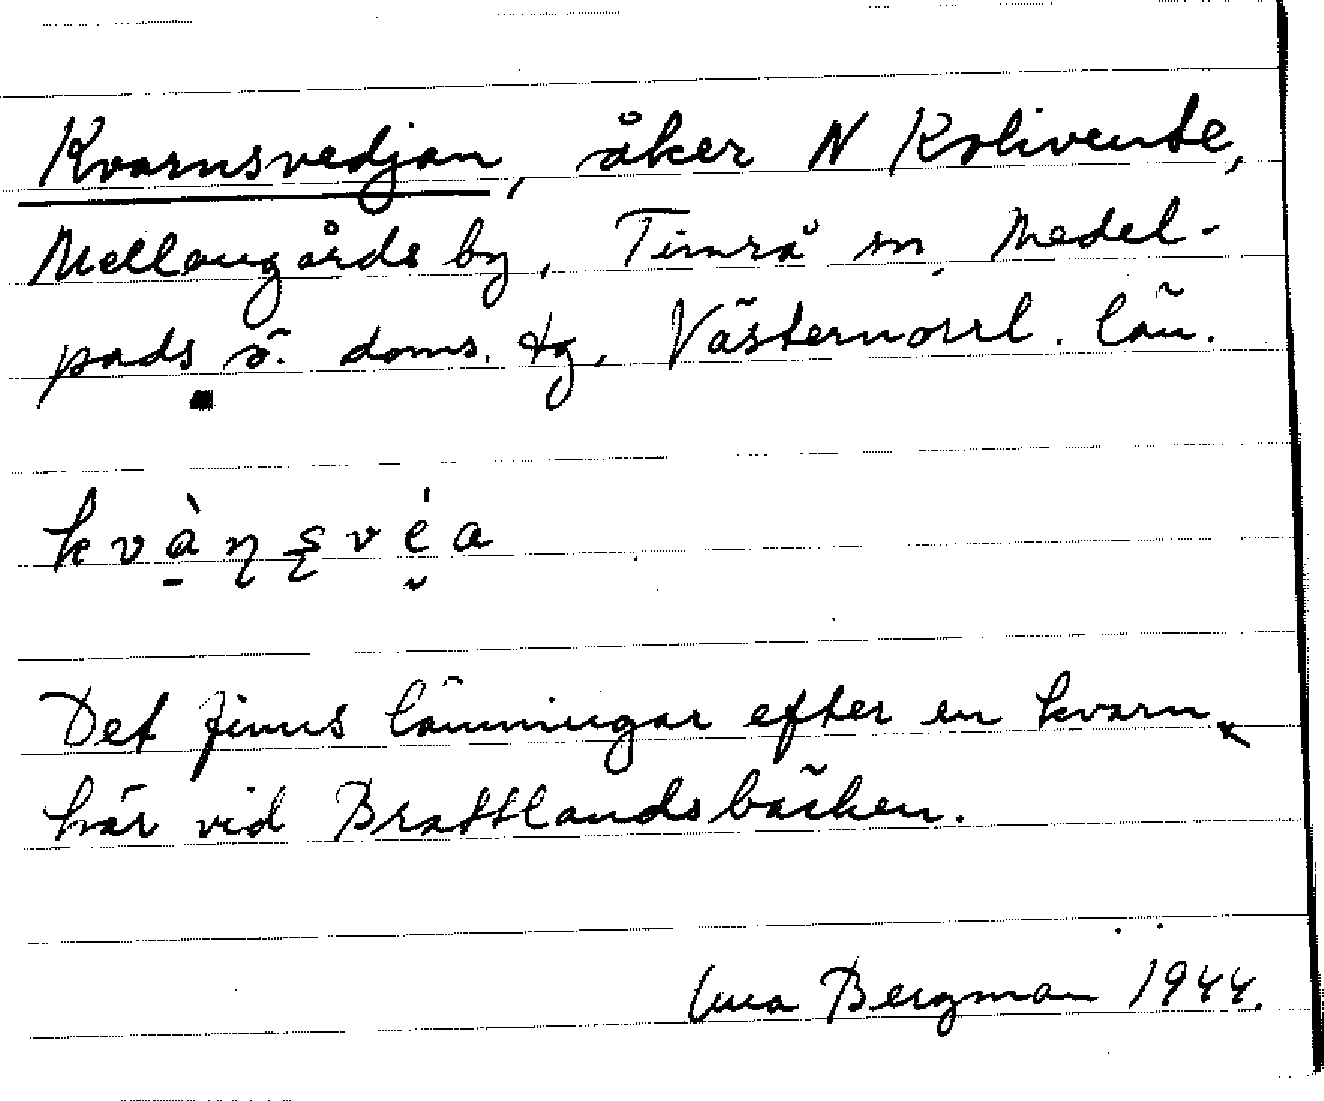 Kvarnsvedjan, åker N Kolivente,
Mellangårds by, Timrå sn, Medel-
pads ö. doms. tg, Västernorrl. län.
kvàṇṣvéa
Det finns lämningar efter en kvarn
här vid Brattlandsbäcken.
Bergman 1944.